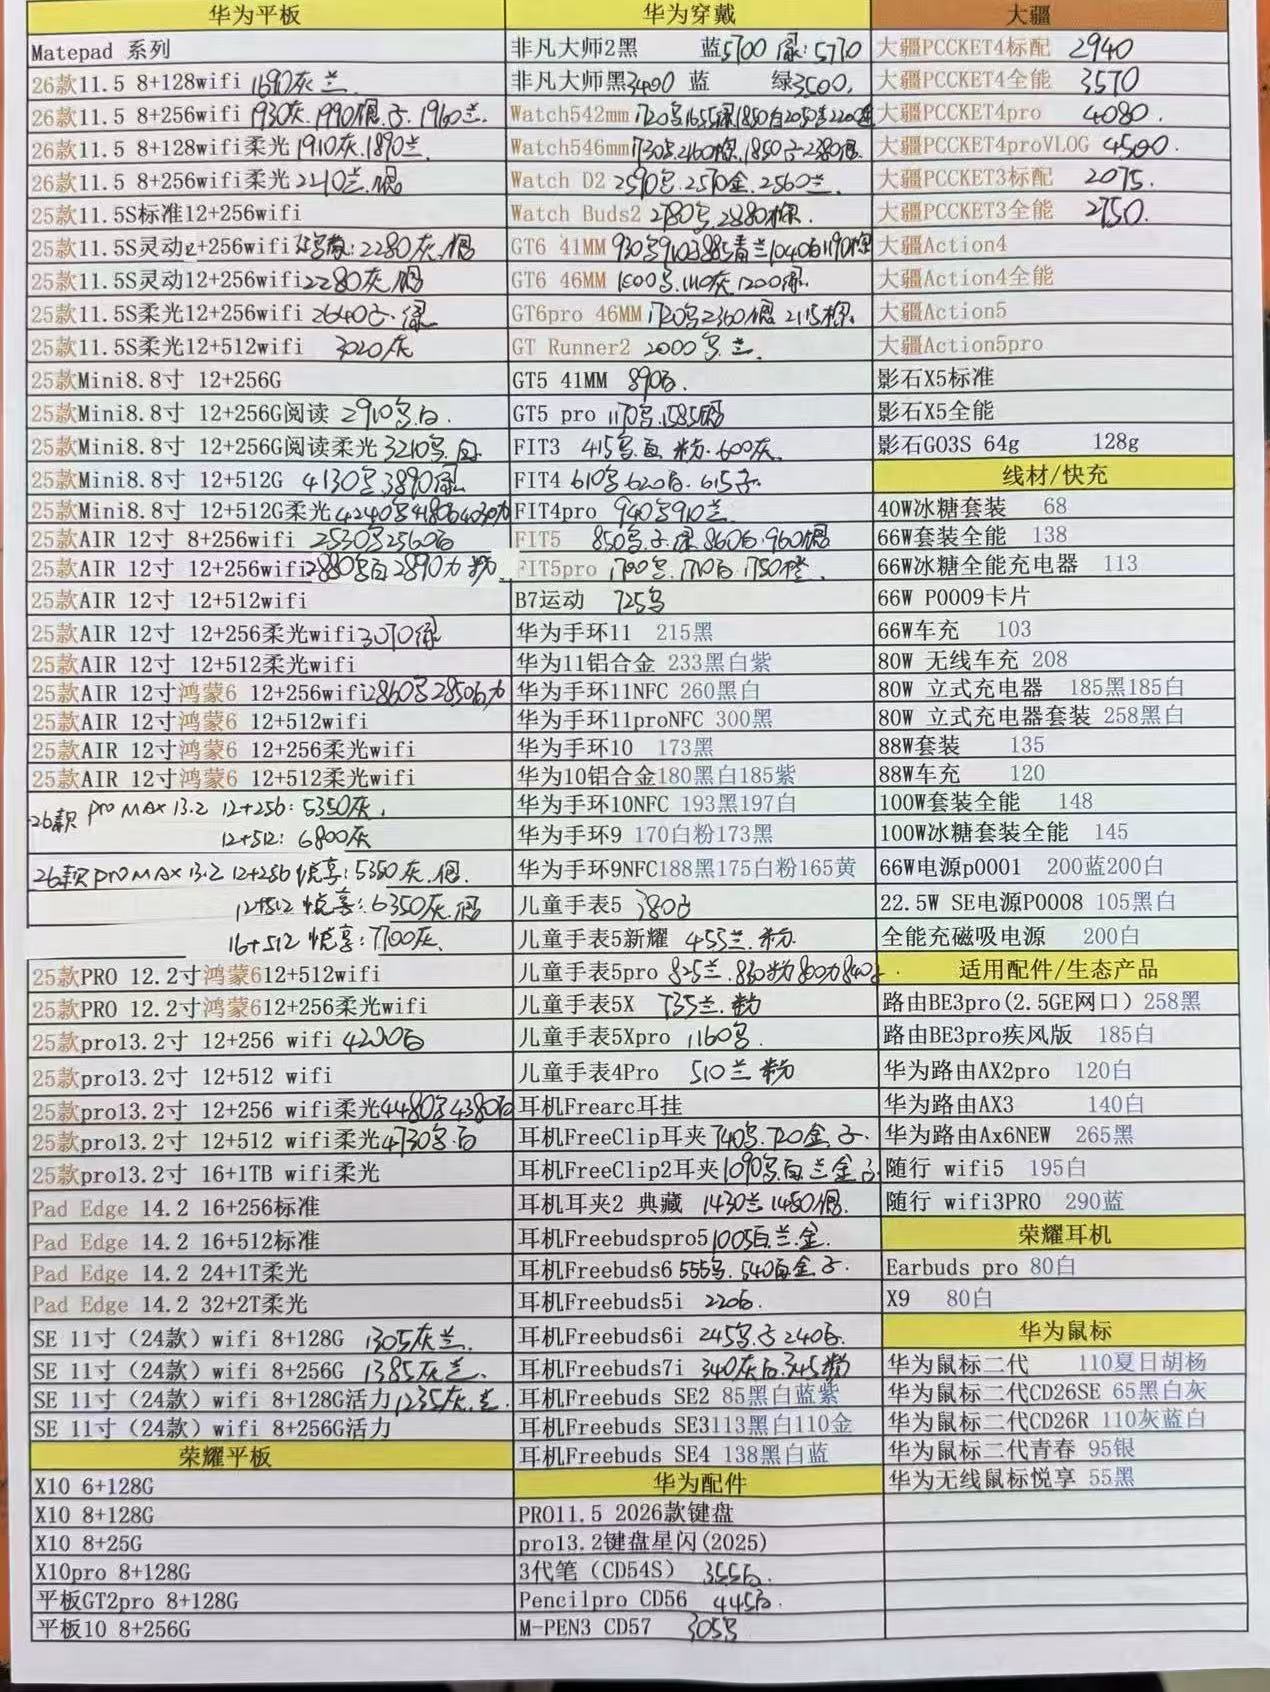 华为平板
Matepad 系列
26款11.5 8+128wifi 1690灰 兰.
26款11.5 8+256wifi 1930灰. 1990银. 子. 1960兰.
26款11.5 8+128wifi柔光1910灰.1890兰
26款11.5 8+256wifi柔光2210兰.银
25款11.5S标准12+256wifi
25款11.5S灵动 +256wifi : 2280灰.银
25款11.5S灵动12+256wifi2280灰 银
25款11.5S柔光12+256wifi 2640子.绿
25款11.5S柔光12+512wifi 3020灰
25款Mini8.8寸 12+256G
25款Mini8.8寸 12+256G阅读 2910号.白.
25款Mini8.8寸 12+256G阅读柔光3210号.白
25款Mini8.8寸 12+512G 4130号.3890绿
25款Mini8.8寸 12+512G柔光4240号4180白4030力
25款AIR 12寸 8+256wifi 2530号2560白
25款AIR 12寸 12+256wifi2880号白2890力 粉
25款AIR 12寸 12+512wifi
25款AIR 12寸 12+256柔光wifi3070绿
25款AIR 12寸 12+512柔光wifi
25款AIR 12寸鸿蒙6 12+256wifi2860号2850白力
25款AIR 12寸鸿蒙6 12+512wifi
25款AIR 12寸鸿蒙6 12+256柔光wifi
25款AIR 12寸鸿蒙6 12+512柔光wifi
26款 pro MAX 13.2 12+256: 5350灰.
12+512: 6800灰
26款 pro MAX 13.2 12+256 悦享: 5350灰.银.
12+512 悦享: 6350灰.银
16+512 悦享: 7700灰.
25款PRO 12.2寸鸿蒙612+512wifi
25款PRO 12.2寸鸿蒙612+256柔光wifi
25款pro13.2寸 12+256 wifi 4200白
25款pro13.2寸 12+512 wifi
25款pro13.2寸 12+256 wifi柔光4480号4380白
25款pro13.2寸 12+512 wifi柔光4730号.白
25款pro13.2寸 16+1TB wifi柔光
Pad Edge 14.2 16+256标准
Pad Edge 14.2 16+512标准
Pad Edge 14.2 24+1T柔光
Pad Edge 14.2 32+2T柔光
SE 11寸（24款）wifi 8+128G 1305灰兰.
SE 11寸（24款）wifi 8+256G 1385灰兰.
SE 11寸（24款）wifi 8+128G活力1235灰.兰.
SE 11寸（24款）wifi 8+256G活力
荣耀平板
X10 6+128G
X10 8+128G
X10 8+25G
X10pro 8+128G
平板GT2pro 8+128G
平板10 8+256G
华为穿戴
非凡大师2黑 蓝5700 绿: 5770
非凡大师黑3400 蓝 绿3500.
Watch542mm 1720号1655绿1850白2050 2200
Watch546mm1730号.2160棕.1850子2380银.
Watch D2 2590号.2570金.2560兰.
Watch Buds2 2780号.2880棕.
GT6 41MM 930号910 885青兰1040白1190棕
GT6 46MM 1000号.1110灰1200绿.
GT6pro 46MM 1720号2360银 2115棕.
GT Runner2 2000号.兰.
GT5 41MM 890白.
GT5 pro 1170号.1585银
FIT3 415号.白 粉.600灰.
FIT4 610号620白.615子.
FIT4pro 940号910兰.
FIT5 850号.子.绿 860白.960银
FIT5pro 1700号.1710白.1750橙.
B7运动 725号
华为手环11 215黑
华为11铝合金 233黑白紫
华为手环11NFC 260黑白
华为手环11proNFC 300黑
华为手环10 173黑
华为10铝合金180黑白185紫
华为手环10NFC 193黑197白
华为手环9 170白粉173黑
华为手环9NFC188黑175白粉165黄
儿童手表5 380白
儿童手表5新耀 455兰.粉.
儿童手表5pro 825兰.830粉800力840子.
儿童手表5X 735兰.粉
儿童手表5Xpro 1160号.
儿童手表4Pro 510兰 粉
耳机Frearc耳挂
耳机FreeClip耳夹740号.720金.子.
耳机FreeClip2耳夹1090号白兰金子
耳机耳夹2 典藏 1430兰1450银.
耳机Freebudspro51005白兰.金.
耳机Freebuds6 555号.540白金子.
耳机Freebuds5i 220白.
耳机Freebuds6i 245号.子240白.
耳机Freebuds7i 340灰白.345粉
耳机Freebuds SE2 85黑白蓝紫
耳机Freebuds SE3113黑白110金
耳机Freebuds SE4 138黑白蓝
华为配件
PRO11.5 2026款键盘
pro13.2键盘星闪(2025)
3代笔（CD54S） 355白.
Pencilpro CD56 445白.
M-PEN3 CD57 305号
大疆
大疆PCCKET4标配 2940
大疆PCCKET4全能 3570
大疆PCCKET4pro 4080.
大疆PCCKET4proVLOG 4500.
大疆PCCKET3标配 2075.
大疆PCCKET3全能 2750.
大疆Action4
大疆Action4全能
大疆Action5
大疆Action5pro
影石X5标准
影石X5全能
影石GO3S 64g 128g
线材/快充
40W冰糖套装 68
66W套装全能 138
66W冰糖全能充电器 113
66W P0009卡片
66W车充 103
80W 无线车充 208
80W 立式充电器 185黑185白
80W 立式充电器套装 258黑白
88W套装 135
88W车充 120
100W套装全能 148
100W冰糖套装全能 145
66W电源p0001 200蓝200白
22.5W SE电源P0008 105黑白
全能充磁吸电源 200白
适用配件/生态产品
路由BE3pro(2.5GE网口) 258黑
路由BE3pro疾风版 185白
华为路由AX2pro 120白
华为路由AX3 140白
华为路由Ax6NEW 265黑
随行 wifi5 195白
随行 wifi3PRO 290蓝
荣耀耳机
Earbuds pro 80白
X9 80白
华为鼠标
华为鼠标二代 110夏日胡杨
华为鼠标二代CD26SE 65黑白灰
华为鼠标二代CD26R 110灰蓝白
华为鼠标二代青春 95银
华为无线鼠标悦享 55黑